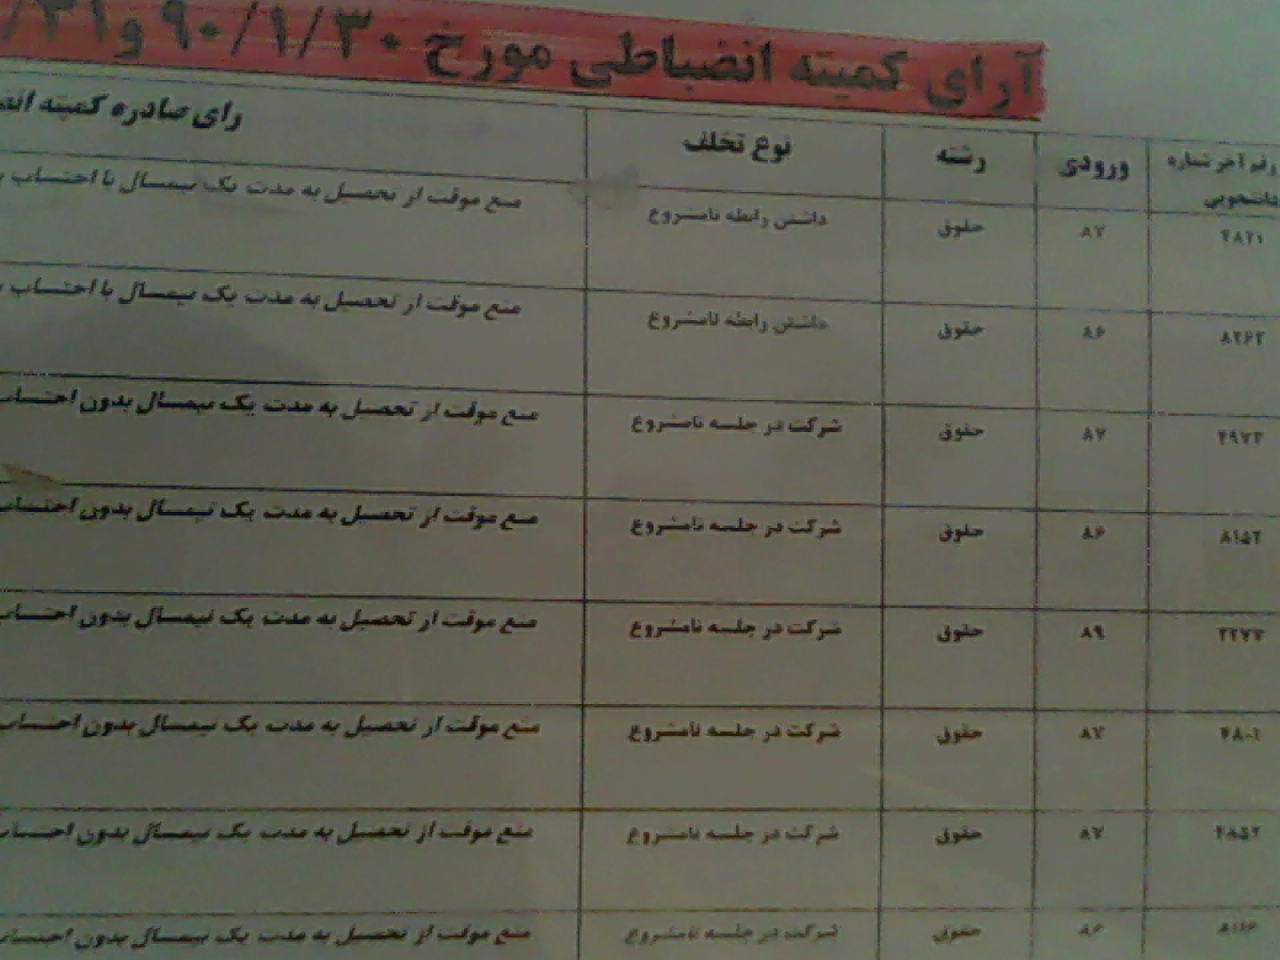 آرای کمیته انضباطی مورخ ۹۰/۱/۳۰ و ۳۱/
رقم آخر شماره دانشجویی ورودی رشته نوع تخلف رای صادره کمیته
۴۸۲۱ ۸۷ حقوق داشتن رابطه نامشروع منع موقت از تحصیل به مدت یک نیمسال با احتساب
۸۲۶۲ ۸۶ حقوق داشتن رابطه نامشروع منع موقت از تحصیل به مدت یک نیمسال با احتساب
۴۹۷۳ ۸۷ حقوق شرکت در جلسه نامشروع منع موقت از تحصیل به مدت یک نیمسال بدون احتساب
۸۱۵۲ ۸۶ حقوق شرکت در جلسه نامشروع منع موقت از تحصیل به مدت یک نیمسال بدون احتساب
۸۹ حقوق شرکت در جلسه نامشروع منع موقت از تحصیل به مدت یک نیمسال بدون احتساب
۴۸۰۱ ۸۷ حقوق شرکت در جلسه نامشروع منع موقت از تحصیل به مدت یک نیمسال بدون احتساب
۴۸۵۲ ۸۷ حقوق شرکت در جلسه نامشروع منع موقت از تحصیل به مدت یک نیمسال بدون احتساب
۸۶ حقوق شرکت در جلسه نامشروع منع موقت از تحصیل به مدت یک نیمسال بدون احتساب